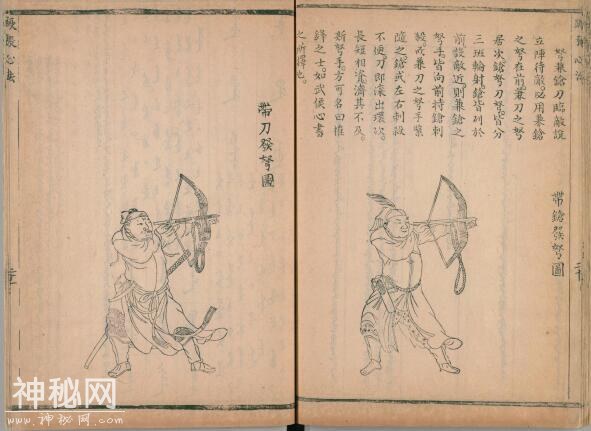 弩兼鎗刀臨敵說
立陣待敵。必用兼鎗
之弩在前。兼刀之弩
居次。鎗弩刀弩。皆分
三班輪射。鎗皆列於
前。設敵近則兼鎗之
弩手。皆向前持鎗刺
殺。或兼刀之弩手緊
隨之。鎗或左右刺殺
不便。刀即滾出環次。
長短相資。濟其不及。
斯弩手。方可名曰摧
鋒之士。如武侯心書
之所擇也。
帶鎗發弩圖
帶刀發弩圖
蹶張心法
神秘网
www.神秘网.com